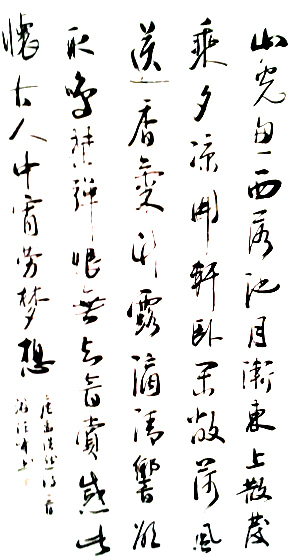 山光忽西落池月漸東上散發
乘夕涼開軒臥閑敞荷風
送香氣竹露滴清響欲
取鳴琴彈恨無知音賞感此
懷古人中宵勞夢想
唐孟浩然詩一首